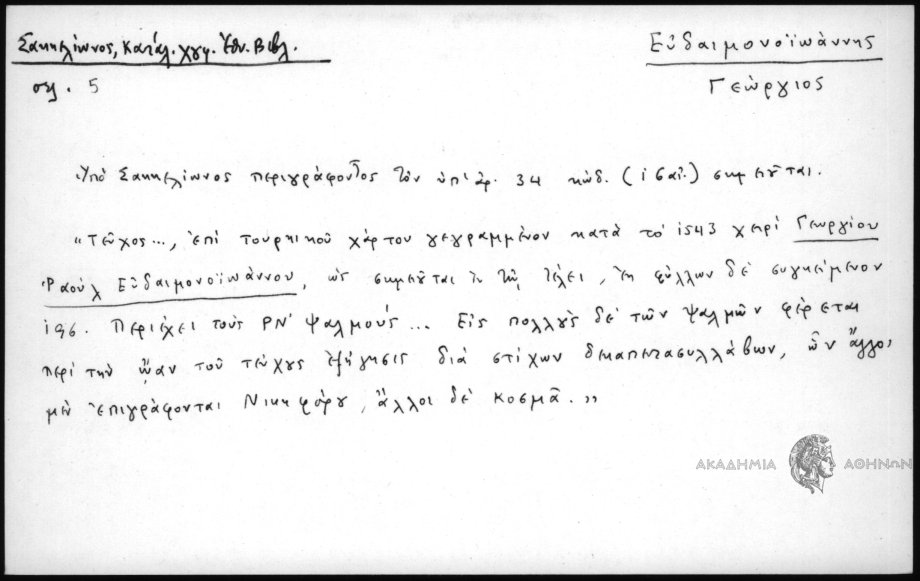 Σακκελίωνος, Κατάλ. χγφ. Ἐθν. Βιβλ.
σελ. 5
Εὐδαιμονοϊωάννης
Γεώργιος
Ὑπὸ Σακκελίωνος περιγράφοντος τὸν ὑπ' ἀρ. 34 κώδ. (ις αἰ.) σημειοῦται.
"Τεῦχος..., ἐπὶ τουρκικοῦ χάρτου γεγραμμένον κατὰ τὸ 1543 χειρὶ Γεωργίου
Ῥαοὺλ Εὐδαιμονοϊωάννου, ὡς σημειοῦται ἐν τῷ τέλει, ἐκ φύλλων δὲ συγκείμενον
196. Περιέχει τοὺς ΡΝ' ψαλμούς... Εἰς πολλοὺς δὲ τῶν ψαλμῶν φέρεται
περὶ τὴν ᾤαν τοῦ τεύχους ἐξήγησις διὰ στίχων δεκαπεντασυλλάβων, ὧν ἄλλοι
μὲν ἐπιγράφονται Νικηφόρου, ἄλλοι δὲ Κοσμᾶ."
ΑΚΑΔΗΜΙΑ ΑΘΗΝΩΝ